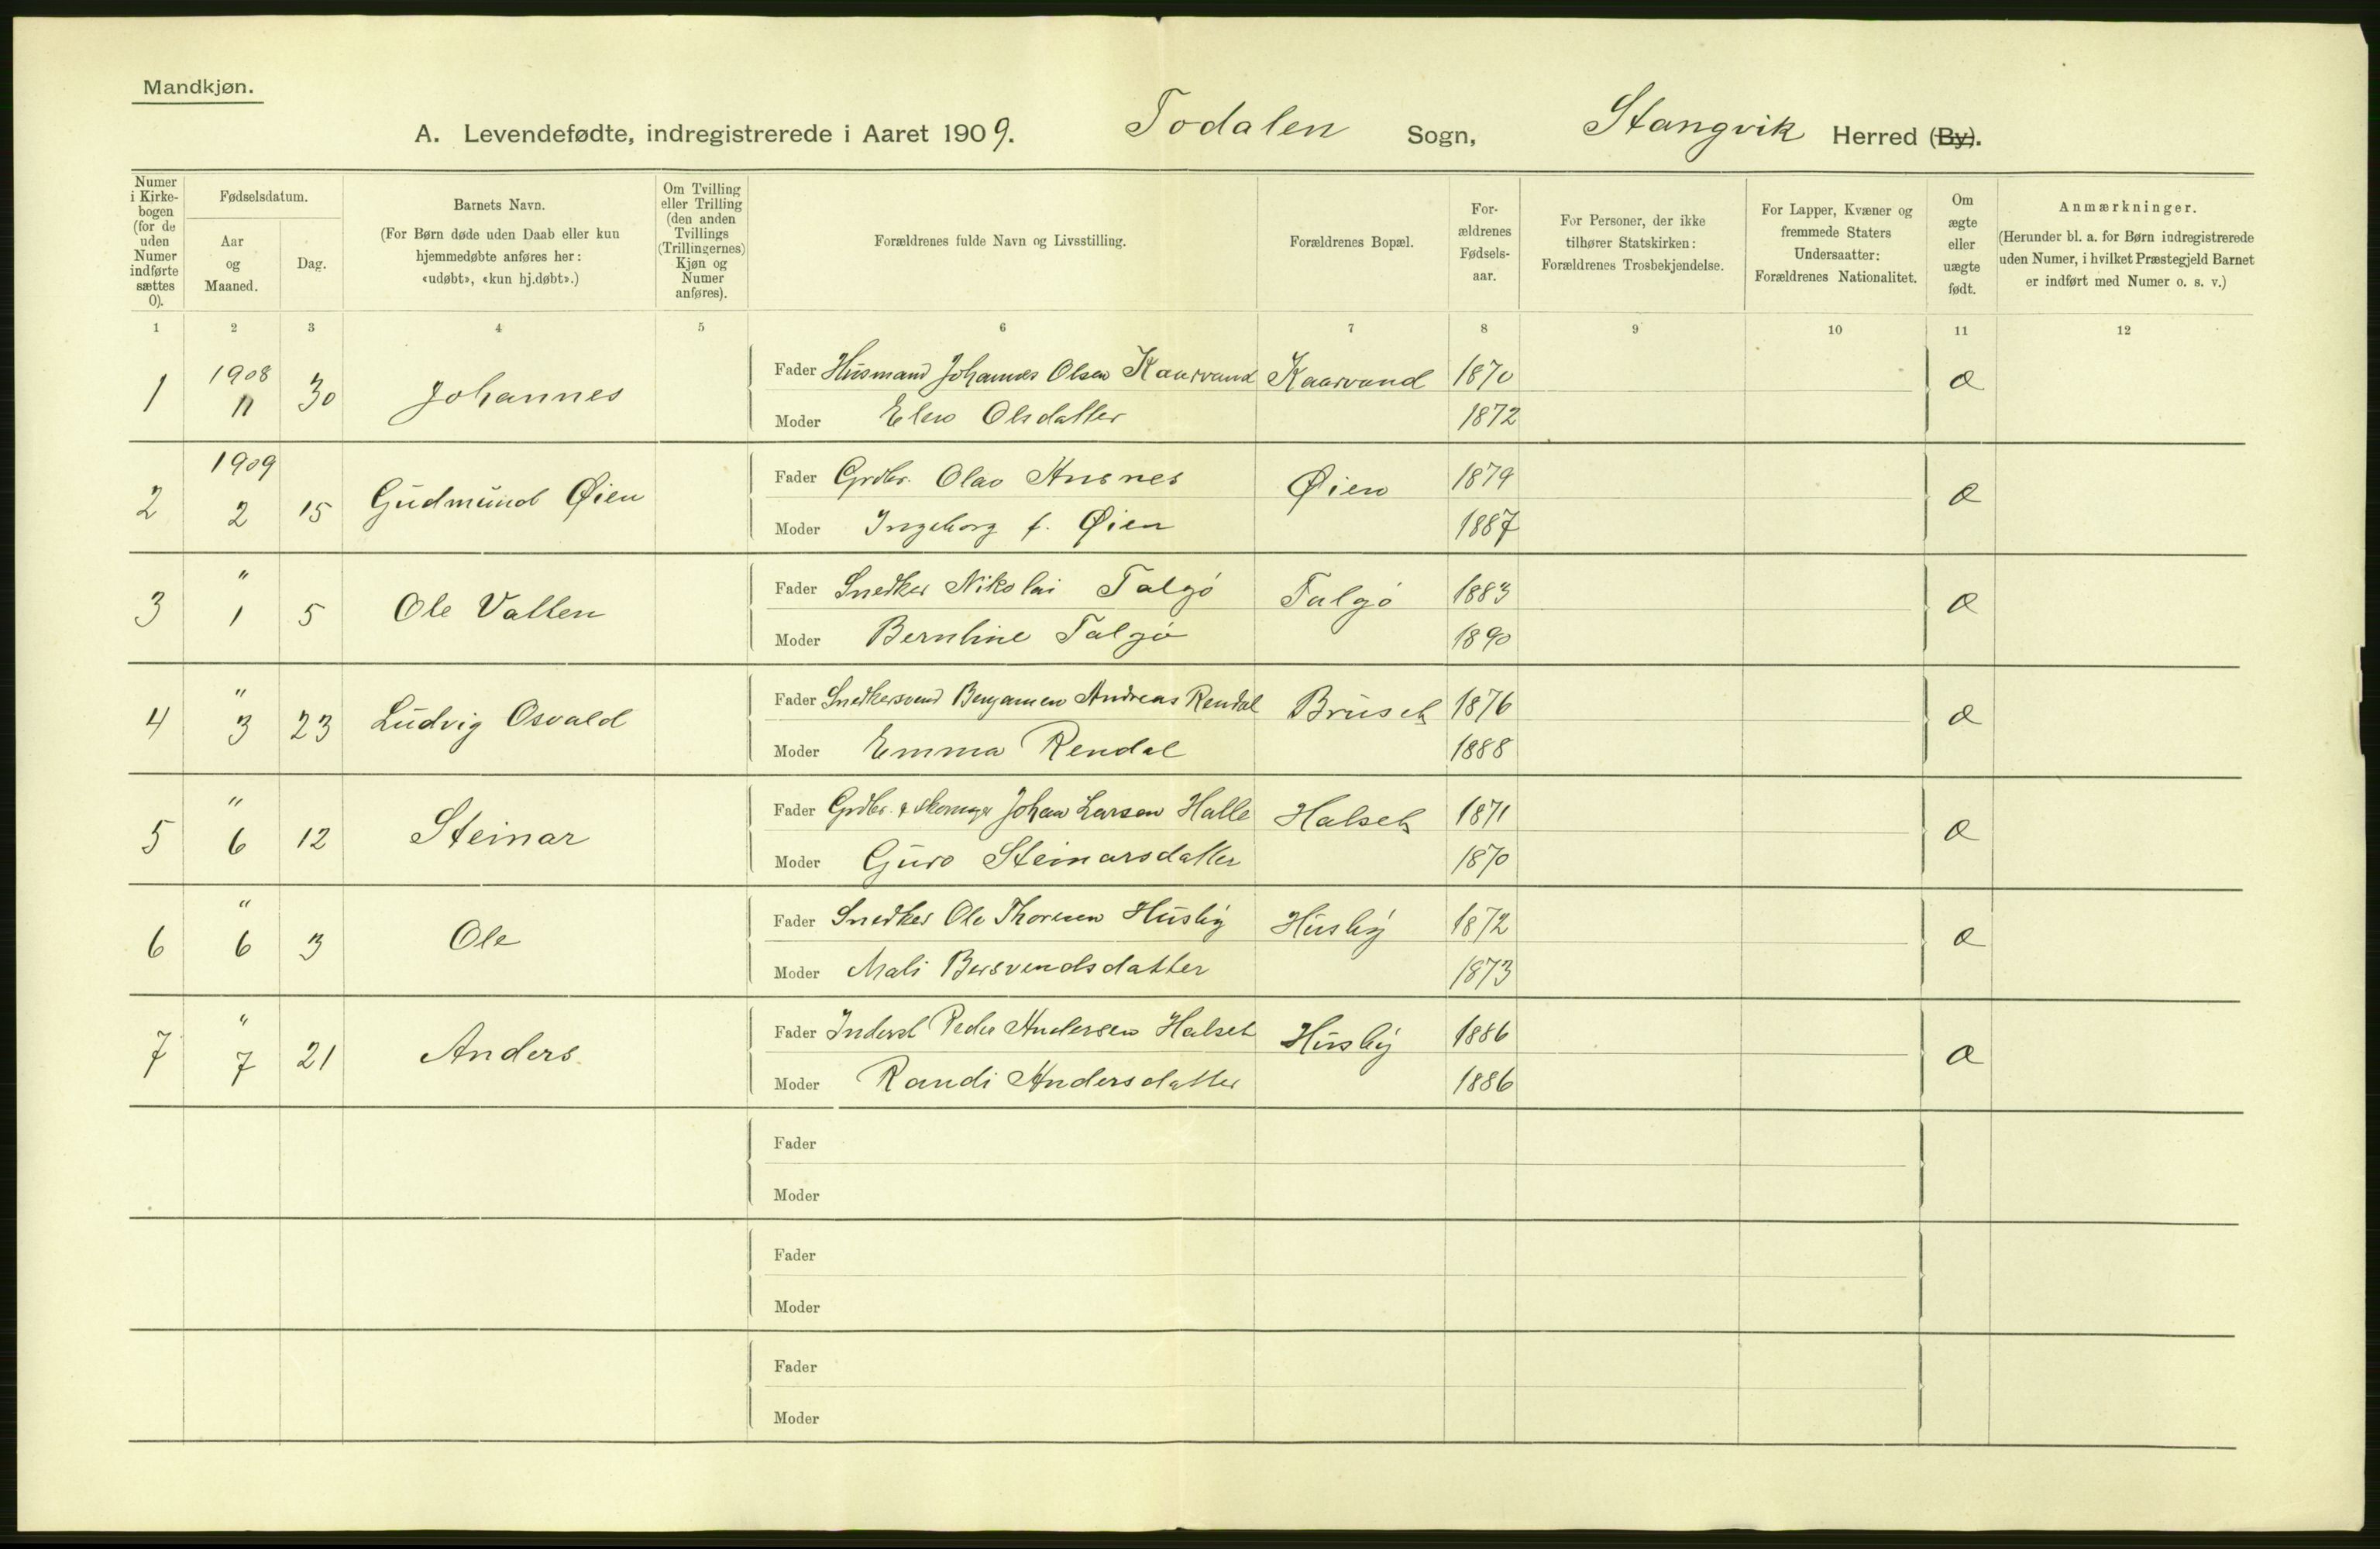 Mandkjøn.
A. Levendefødte, indregistrerede i Aaret 1909. Todalen Sogn, Stangvik Herred (By).
Numer i Kirkebogen (for de uden Numer indførte sættes 0).
Fødselsdatum.
Aar og Maaned.
Dag.
Barnets Navn.
(For Børn døde uden Daab eller kun hjemmedøbte anføres her: «udøbt», «kun hj.døbt».)
Om Tvilling eller Trilling (den anden Tvillings (Trillingernes) Kjøn og Numer anføres).
Forældrenes fulde Navn og Livsstilling.
Forældrenes Bopæl.
Forældrenes Fødselsaar.
For Personer, der ikke tilhører Statskirken: Forældrenes Trosbekjendelse.
For Lapper, Kvæner og fremmede Staters Undersaatter: Forældrenes Nationalitet.
Om ægte eller uægte født.
Anmærkninger.
(Herunder bl. a. for Børn indregistrerede uden Numer, i hvilket Præstegjeld Barnet er indført med Numer o. s. v.)
1 2 3 4 5 6 7 8 9 10 11 12
1 1908 11 30 Johannes Fader Husmand Johannes Olsen Kaarvand Kaarvand 1870 æ
Moder Elen Olsdatter 1872
2 1909 2 15 Gudmund Øien Fader Grdbr. Olav Husnes Øien 1879 æ
Moder Ingeborg f. Øien 1887
3 " 1 5 Ole Vallen Fader Snedker Nikolai Talgø Talgø 1883 æ
Moder Berntine Talgø 1890
4 " 3 23 Ludvig Osvald Fader Snedkersvend Benjamen Andreas Rendal Bruset 1876 æ
Moder Emma Rendal 1888
5 " 6 12 Steinar Fader Grdbr. & skomager Johan Larsen Halle Halset 1871 æ
Moder Guro Steinarsdatter 1870
6 " 6 3 Ole Fader Snedker Ole Thoresen Husby Husby 1872 æ
Moder Mali Bersvendsdatter 1873
7 " 7 21 Anders Fader Inderst Peder Andersen Halset Husby 1886 æ
Moder Randi Andersdatter 1886
Fader
Moder
Fader
Moder
Fader
Moder